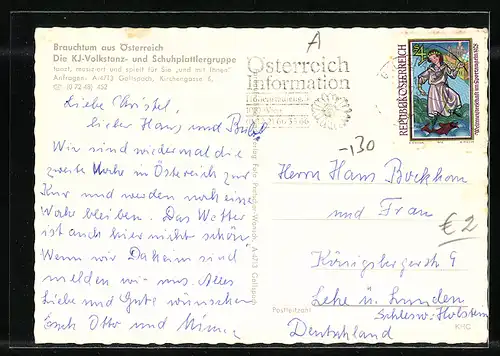 Brauchtum aus Österreich
Die KJ-Volkstanz- und Schuhplattlergruppe
tanzt, musiziert und spielt für Sie „und mit Ihnen"
Anfragen: A-4713 Gallspach, Kirchengasse 6,
(0 72 48) 432
A
Österreich
Information
REPUBLIK ÖSTERREICH
4
Liebe Christel,
lieber Hans und
Wir sind wiedermal die
zweite Woche in Österreich zur
Kur und werden noch eine
Woche bleiben. Das Wetter
ist auch hier nicht schön.
Wenn wir Daheim sind
melden wir uns. Alles
Liebe und Gute wünschen
Euch Otto und
-,130
Herrn Hans Bockhom
und Frau
€ 2
Königsbergerstr 9
Lehe ü. Lunden
Schlesw. Holstein
Postleitzahl
Deutschland
K-IC